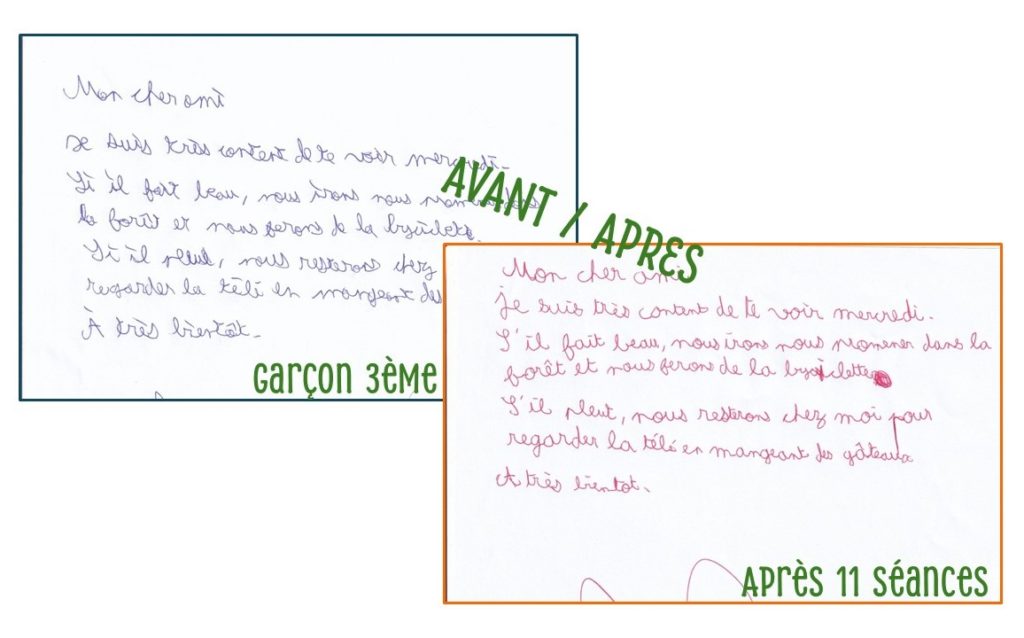 Mon cher ami
Je suis très content de te voir mercredi.
Si il fait beau, nous irons nous
la forêt et nous ferons de la
Si il pleut, nous resterons chez
regarder la télé en mangeant des
À très bientôt.
GARÇON 3ÈME
AVANT / APRES
Mon cher ami
je suis très content de te voir mercredi.
S'il fait beau, nous irons nous promener dans la
forêt et nous ferons de la
S'il pleut, nous resterons chez moi pour
regarder la télé en mangeant des gâteaux
A très bientot.
APRÈS 11 SÉANCES